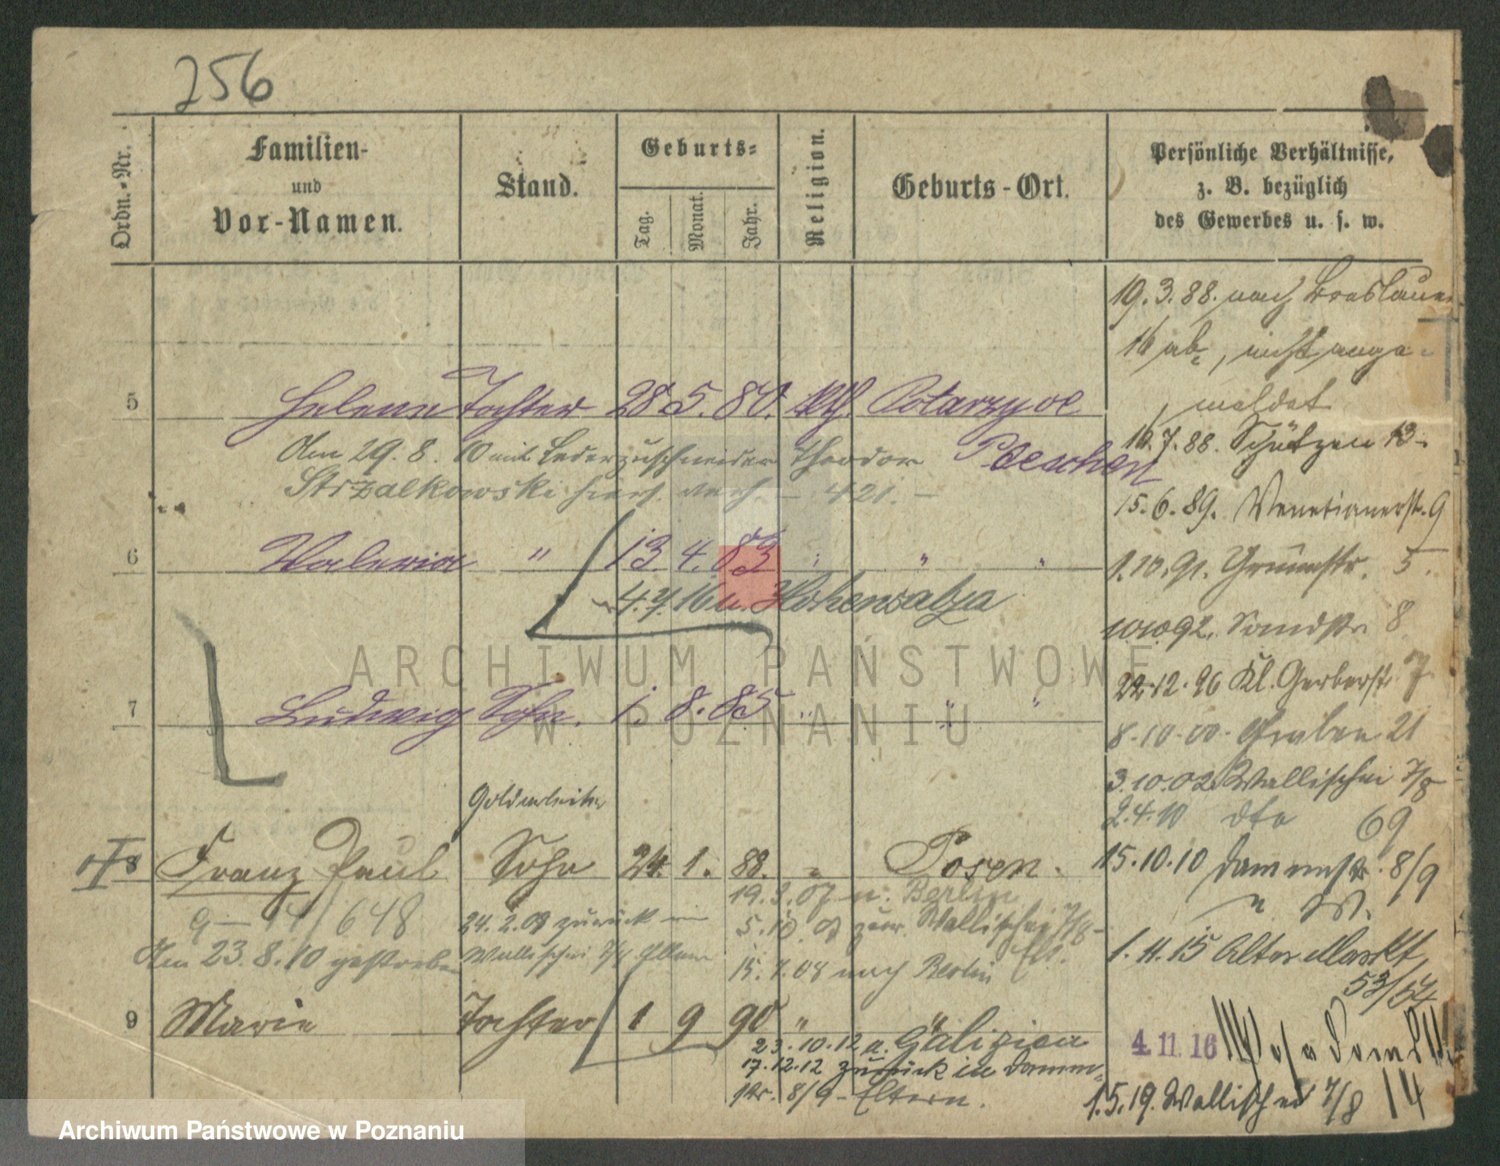 256
Ordn.-Nr.
Familien-
und
Vor-Namen.
Stand.
Geburts-
Tag.
Monat.
Jahr.
Religion.
Geburts-Ort.
Persönliche Verhältnisse,
z. B. bezüglich
des Gewerbes u. s. w.
19.3.88. nach Breslauer
16 ab, nicht ange-
meldet
5 Helene Tochter 28 5. 80. kth. Potarzyce
Am 29. 8. 10 mit Lederzuschneider Theodor
Pleschen
Strzalkowski hierf. verh. - 421. -
16.7.88. Schützen 13-
15.6.89. Venetianerstr. 9
6 Valeria " 13 4. 83 " " "
4. 7. 16 n. Hohensalza
1.10.91. Grünestr. 5.
10.10.92. Sandstr. 8
22.12.96 Kl. Gerberstr. 7
7 Ludwig Sohn. 1. 8. 85 " " "
8.10.00. Graben 21
3.10.02 Wallischei 7/8
2.4.10 dto 69
8 Franz Paul Sohn 24. 1. 88. " Posen.
15.10.10 Dammstr. 8/9
19.3.07 n. Berlin
24.2.09 zurück
5.10.07 zur. Wallischei 7/8
Am 23. 8. 10 gestorben
Wallischei 7/8 Eltern
15.7.08 nach Berlin
1.4.15 Alter Markt
53/54
9 Marie Tochter 1 9 90 " "
23.10.12 n. Galizien
17.12.12 zurück in Damm-
str. 8/9 - Eltern.
4.11.16
14
1.5.19. Wallischei 7/8
ARCHIWUM PAŃSTWOWE
W POZNANIU
Archiwum Państwowe w Poznaniu